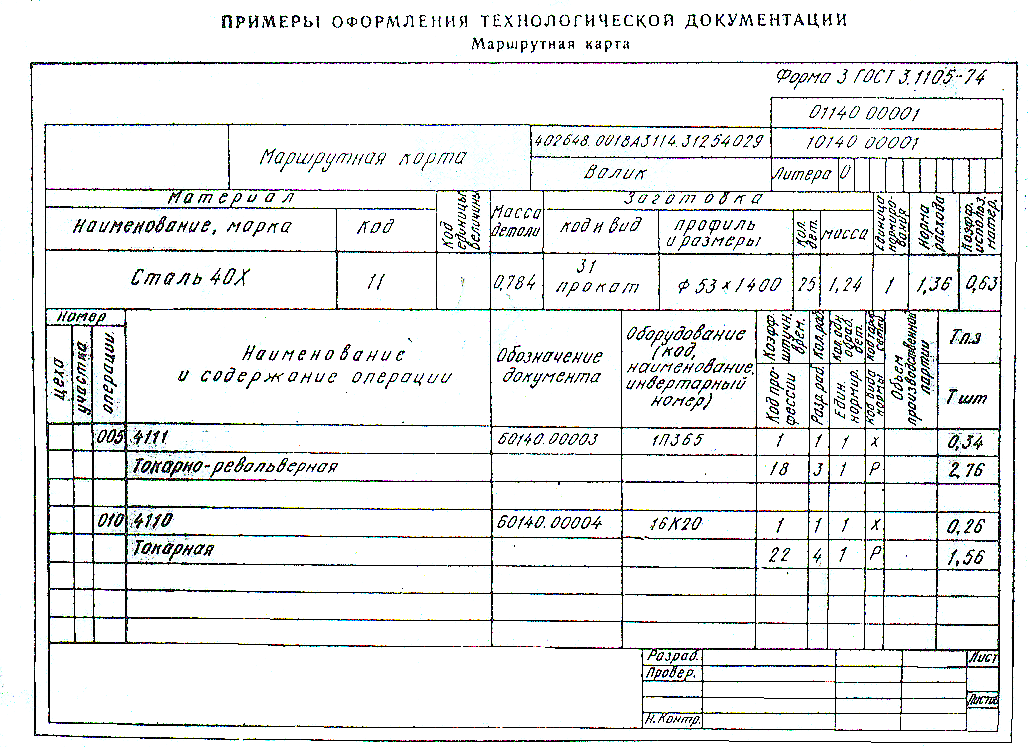 ПРИМЕРЫ ОФОРМЛЕНИЯ ТЕХНОЛОГИЧЕСКОЙ ДОКУМЕНТАЦИИ
Маршрутная карта
Форма 3 ГОСТ 3.1105-74
01140 00001
Маршрутная карта
402648.0018А3114.31254029
10140 00001
Валик
Литера О
Материал
Код единицы величины
Масса детали
Заготовка
Единица нормирования
Норма расхода
Коэфф. использ. матер.
Наименование, марка
Код
код и вид
профиль и размеры
Кол. дет.
масса
Сталь 40Х
11
0,784
31 прокат
Ф 53 × 1400
25
1,24
1
1,36
0,63
Номер
цеха
участка
операции
Наименование
и содержание операции
Обозначение
документа
Оборудование
(код,
наименование,
инвертарный
номер)
Коэфф. штучн. врем.
Кол. раб.
Кол. одн. обраб. дет.
Код тариф. сетки
Объем производственной партии
Тп.з
Код профессии
Разр. раб.
Един. нормир.
Код вида нормы
Тшт
005 4111 60140.00003 1П365 1 1 1 Х 0,34
Токарно-револьверная 18 3 1 Р 2,76
010 4110 60140.00004 16К20 1 1 1 Х 0,26
Токарная 22 4 1 Р 1,56
Разраб.
Лист
Провер.
Листов
Н.Контр.